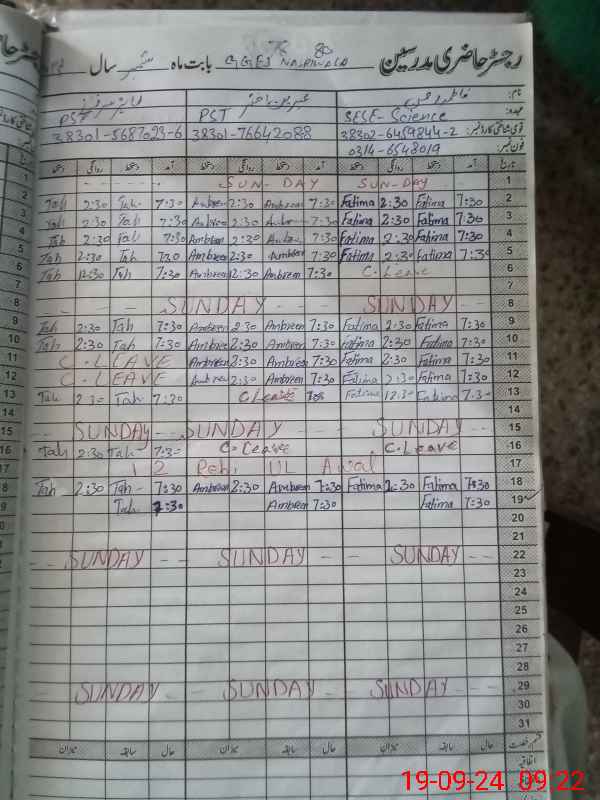 رجسٹر حاضری مدرسین GGES بابت ماہ ستمبر سال
نام:
PST PST SESE-Science عہدہ:
38301-5687023-6 38301-76642088 38302-6459844-2 قومی شناختی کارڈ نمبر:
0314-6548019 فون نمبر:
دستخط روانگی دستخط آمد دستخط روانگی دستخط آمد دستخط روانگی دستخط آمد تاریخ
SUN-DAY SUN-DAY 1
Tah 2:30 Tah 7:30 Ambreen 2:30 Ambreen 7:30 Fatima 2:30 Fatima 7:30 2
Tah 2:30 Tah 7:30 Ambreen 2:30 Ambreen 7:30 Fatima 2:30 Fatima 7:30 3
Tah 2:30 Tah 7:30 Ambreen 2:30 Ambreen 7:30 Fatima 2:30 Fatima 7:30 4
Tah 2:30 Tah 7:30 Ambreen 2:30 Ambreen 7:30 Fatima 2:30 Fatima 7:30 5
Tah 12:30 Tah 7:30 Ambreen 12:30 Ambreen 7:30 C.Leave 6
7
SUNDAY SUNDAY 8
Tah 2:30 Tah 7:30 Ambreen 2:30 Ambreen 7:30 Fatima 2:30 Fatima 7:30 9
Tah 2:30 Tah 7:30 Ambreen 2:30 Ambreen 7:30 Fatima 2:30 Fatima 7:30 10
C.LEAVE Ambreen 2:30 Ambreen 7:30 Fatima 2:30 Fatima 7:30 11
C.LEAVE Ambreen 2:30 Ambreen 7:30 Fatima 2:30 Fatima 7:30 12
Tah 2:30 Tah 7:30 C.Leave Fatima 12:30 Fatima 7:30 13
14
SUNDAY SUNDAY SUNDAY 15
Tah 2:30 Tah 7:30 C.Leave C.Leave 16
12 Rabi UL Awal 17
Tah 2:30 Tah 7:30 Ambreen 2:30 Ambreen 7:30 Fatima 2:30 Fatima 7:30 18
Tah 7:30 Ambreen 7:30 Fatima 7:30 19
20
21
SUNDAY SUNDAY SUNDAY 22
23
24
25
26
27
28
SUNDAY SUNDAY SUNDAY 29
30
31
میزان سابقہ حال میزان سابقہ حال میزان سابقہ حال
اتفاقیہ
19-09-24 09:22